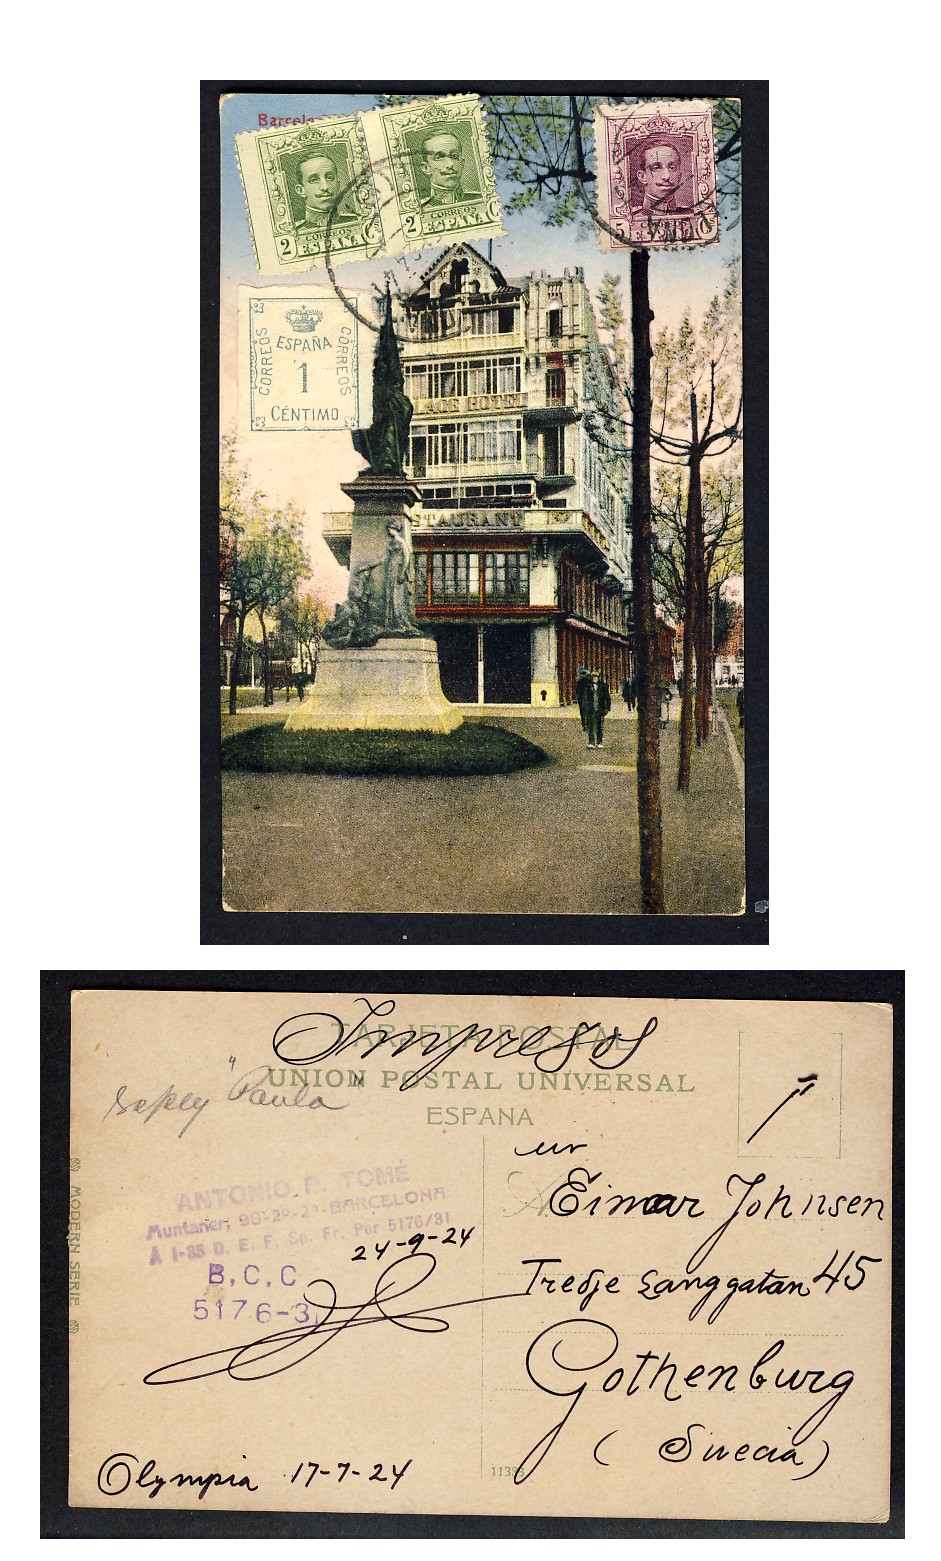 Barcelo
2 CORREOS ESPAÑA C
2 CORREOS ESPAÑA C
5 ESPAÑA C
CORREOS ESPAÑA CORREOS
1
CÉNTIMO
ACE HOTEL
STAURANT
Impresos
TARJETA POSTAL
UNION POSTAL UNIVERSAL
ESPAÑA
"Paula"
MODERN SERIE
ANTONIO P. TOMÉ
Muntaner, 98-2º-2ª-BARCELONA
A 1-85 D. E. F. Sp. Fr. Por 5176/31
24-9-24
B.C.C
5176-3
Olympia 17-7-24
Einar Johnsen
Tredje Langgatan 45
Gothenburg
(Suecia)
1139